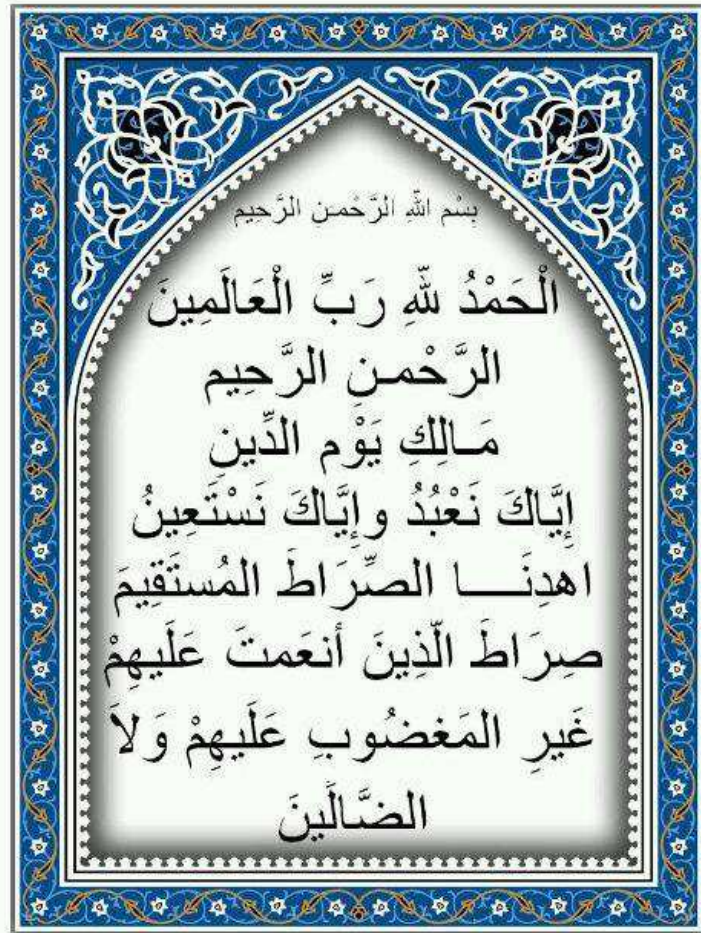 بِسْم اللّهِ الرَّحْمـَنِ الرَّحِيم
الْحَمْدُ للّهِ رَبِّ الْعَالَمِينَ
الرَّحْمـنِ الرَّحِيم
مَـالِكِ يَوْم الدِّينِ
إِيَّاكَ نَعْبُدُ وإِيَّاكَ نَسْتَعِينُ
اهدِنَـــا الصِّرَاطَ المُستَقِيمَ
صِرَاطَ الَّذِينَ أنعَمتَ عَلَيهِمْ
غَيرِ المَغضُوبِ عَلَيهِمْ وَلاَ
الضَّالِّينَ